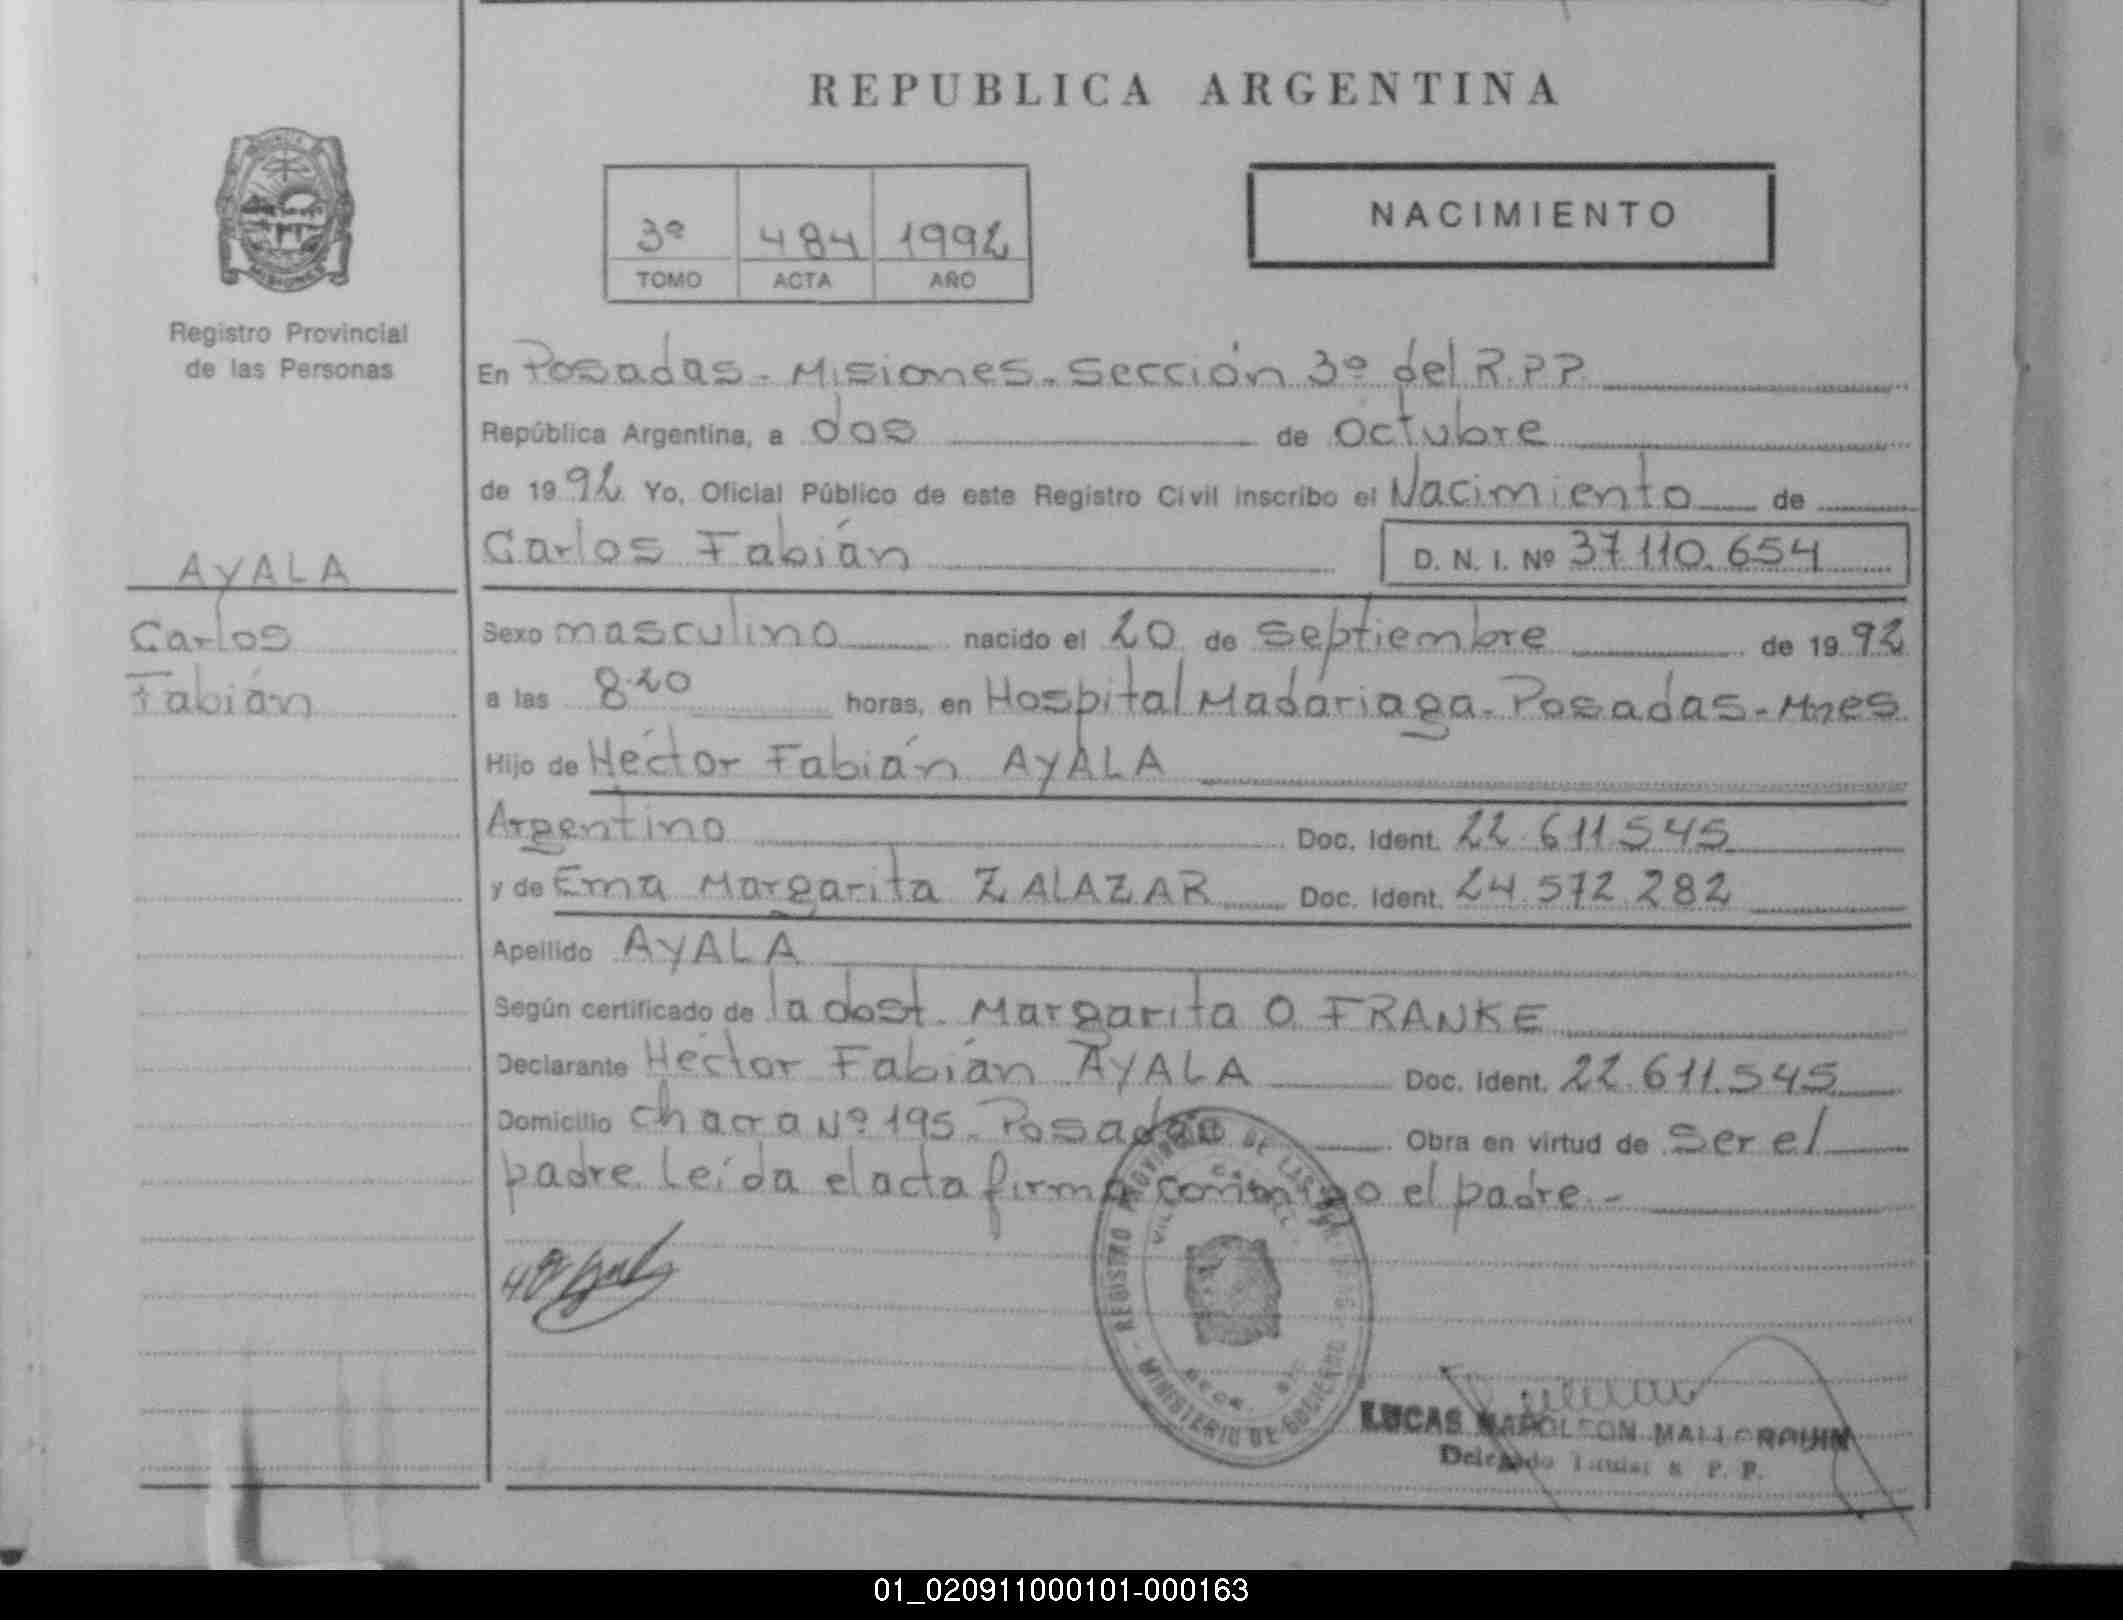 REPUBLICA ARGENTINA
NACIMIENTO
3º 484 1992
TOMO ACTA AÑO
MISIONES
Registro Provincial
de las Personas
AYALA
Carlos
Fabián
En Posadas - Misiones. Sección 3º del R.P.P.
República Argentina, a dos de octubre
de 1992 Yo, Oficial Público de este Registro Civil inscribo el Nacimiento de
Carlos Fabián D. N. I. Nº 37.110.654
Sexo masculino nacido el 20 de septiembre de 1992
a las 8.20 horas, en Hospital Madariaga - Posadas - Mnes
Hijo de Héctor Fabián AYALA
Argentino Doc. Ident. 22.611.545
y de Ema Margarita ZALAZAR Doc. Ident. 24.572.282
Apellido AYALA
Según certificado de la dost. Margarita O. FRANKE
Declarante Héctor Fabián AYALA Doc. Ident. 22.611.545
Domicilio Chacra Nº 195 - Posadas Obra en virtud de ser el
padre. Leída el acta firma conmigo el padre. -
REGISTRO PROVINCIAL DE LAS
MINISTERIO DE GOBIERNO
LUCAS NAPOLEON MALLORQUIN
Delegado P. P.
01_020911000101-000163